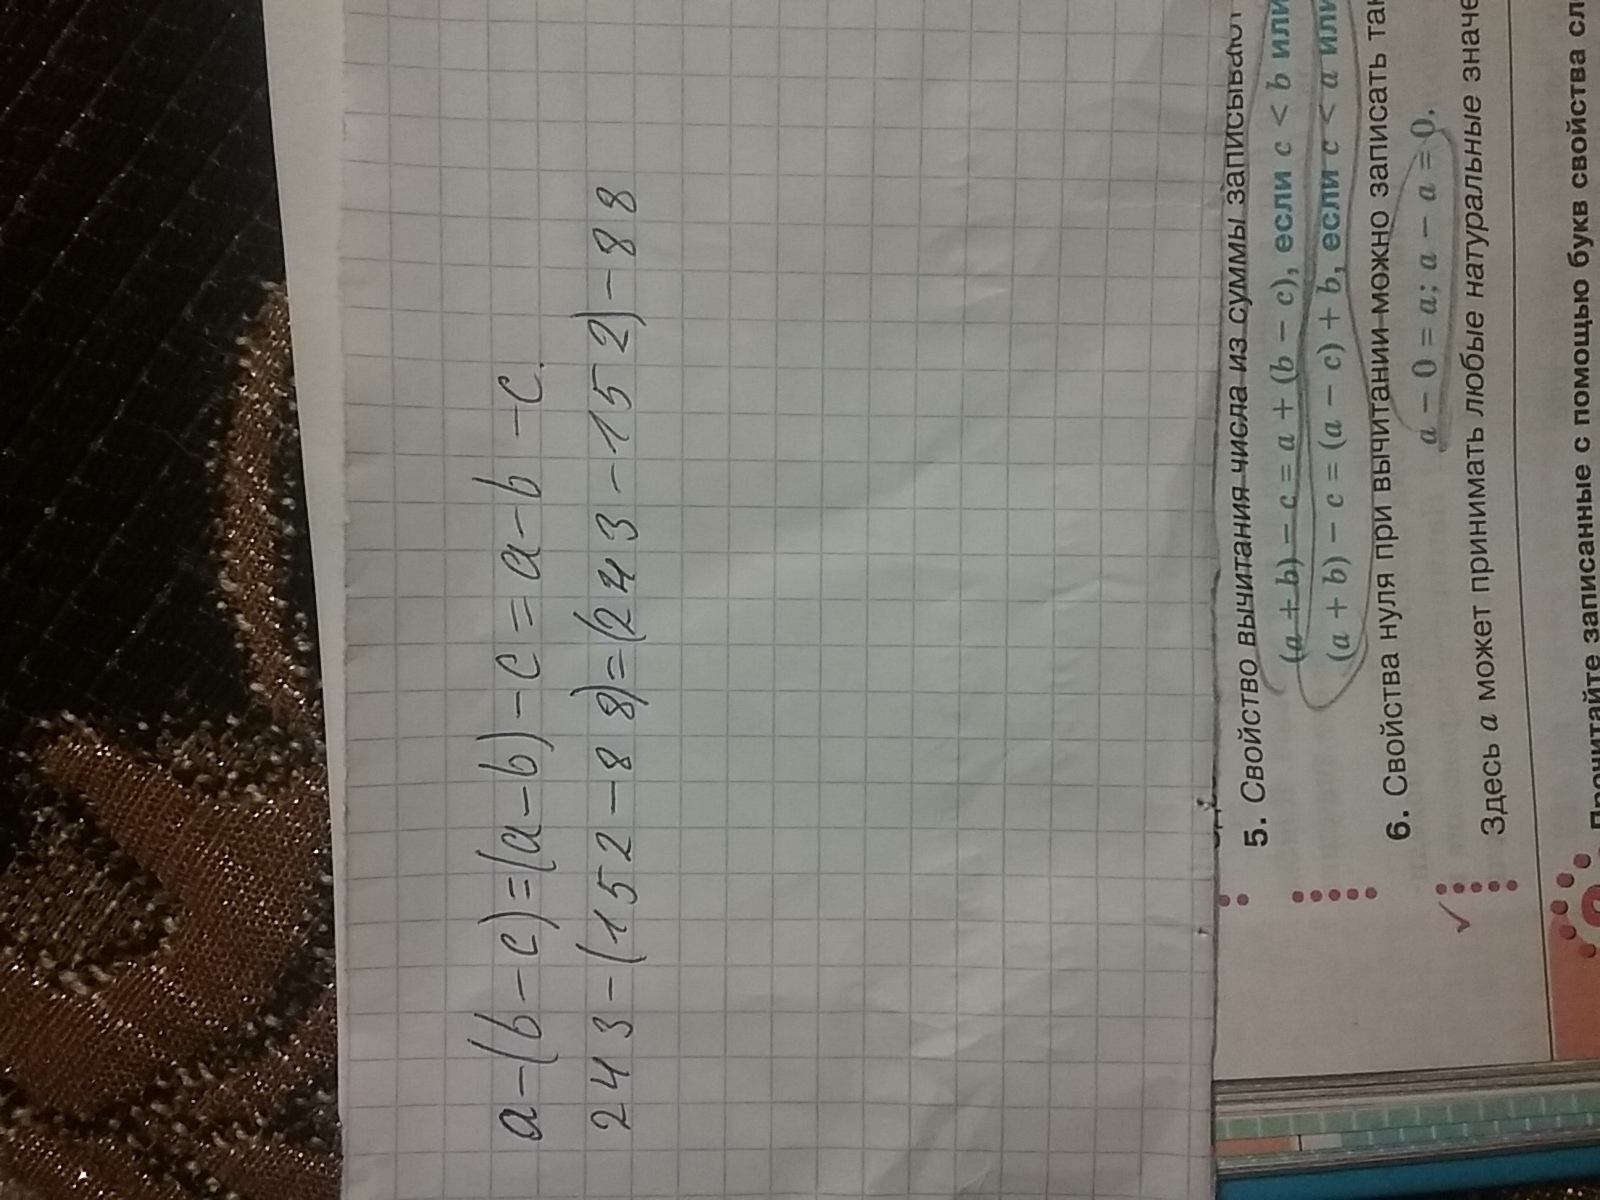 a-(b-c)=(a-b)-c=a-b-c.
243-(152-88)=(243-152)-88
5. Свойство вычитания числа из суммы записывают
(a + b) - c = a + (b - c), если c < b или
(a + b) - c = (a - c) + b, если c < a или
6. Свойства нуля при вычитании можно записать
a - 0 = a; a - a = 0.
Здесь a может принимать любые натуральные
Прочитайте записанные с помощью букв свойства